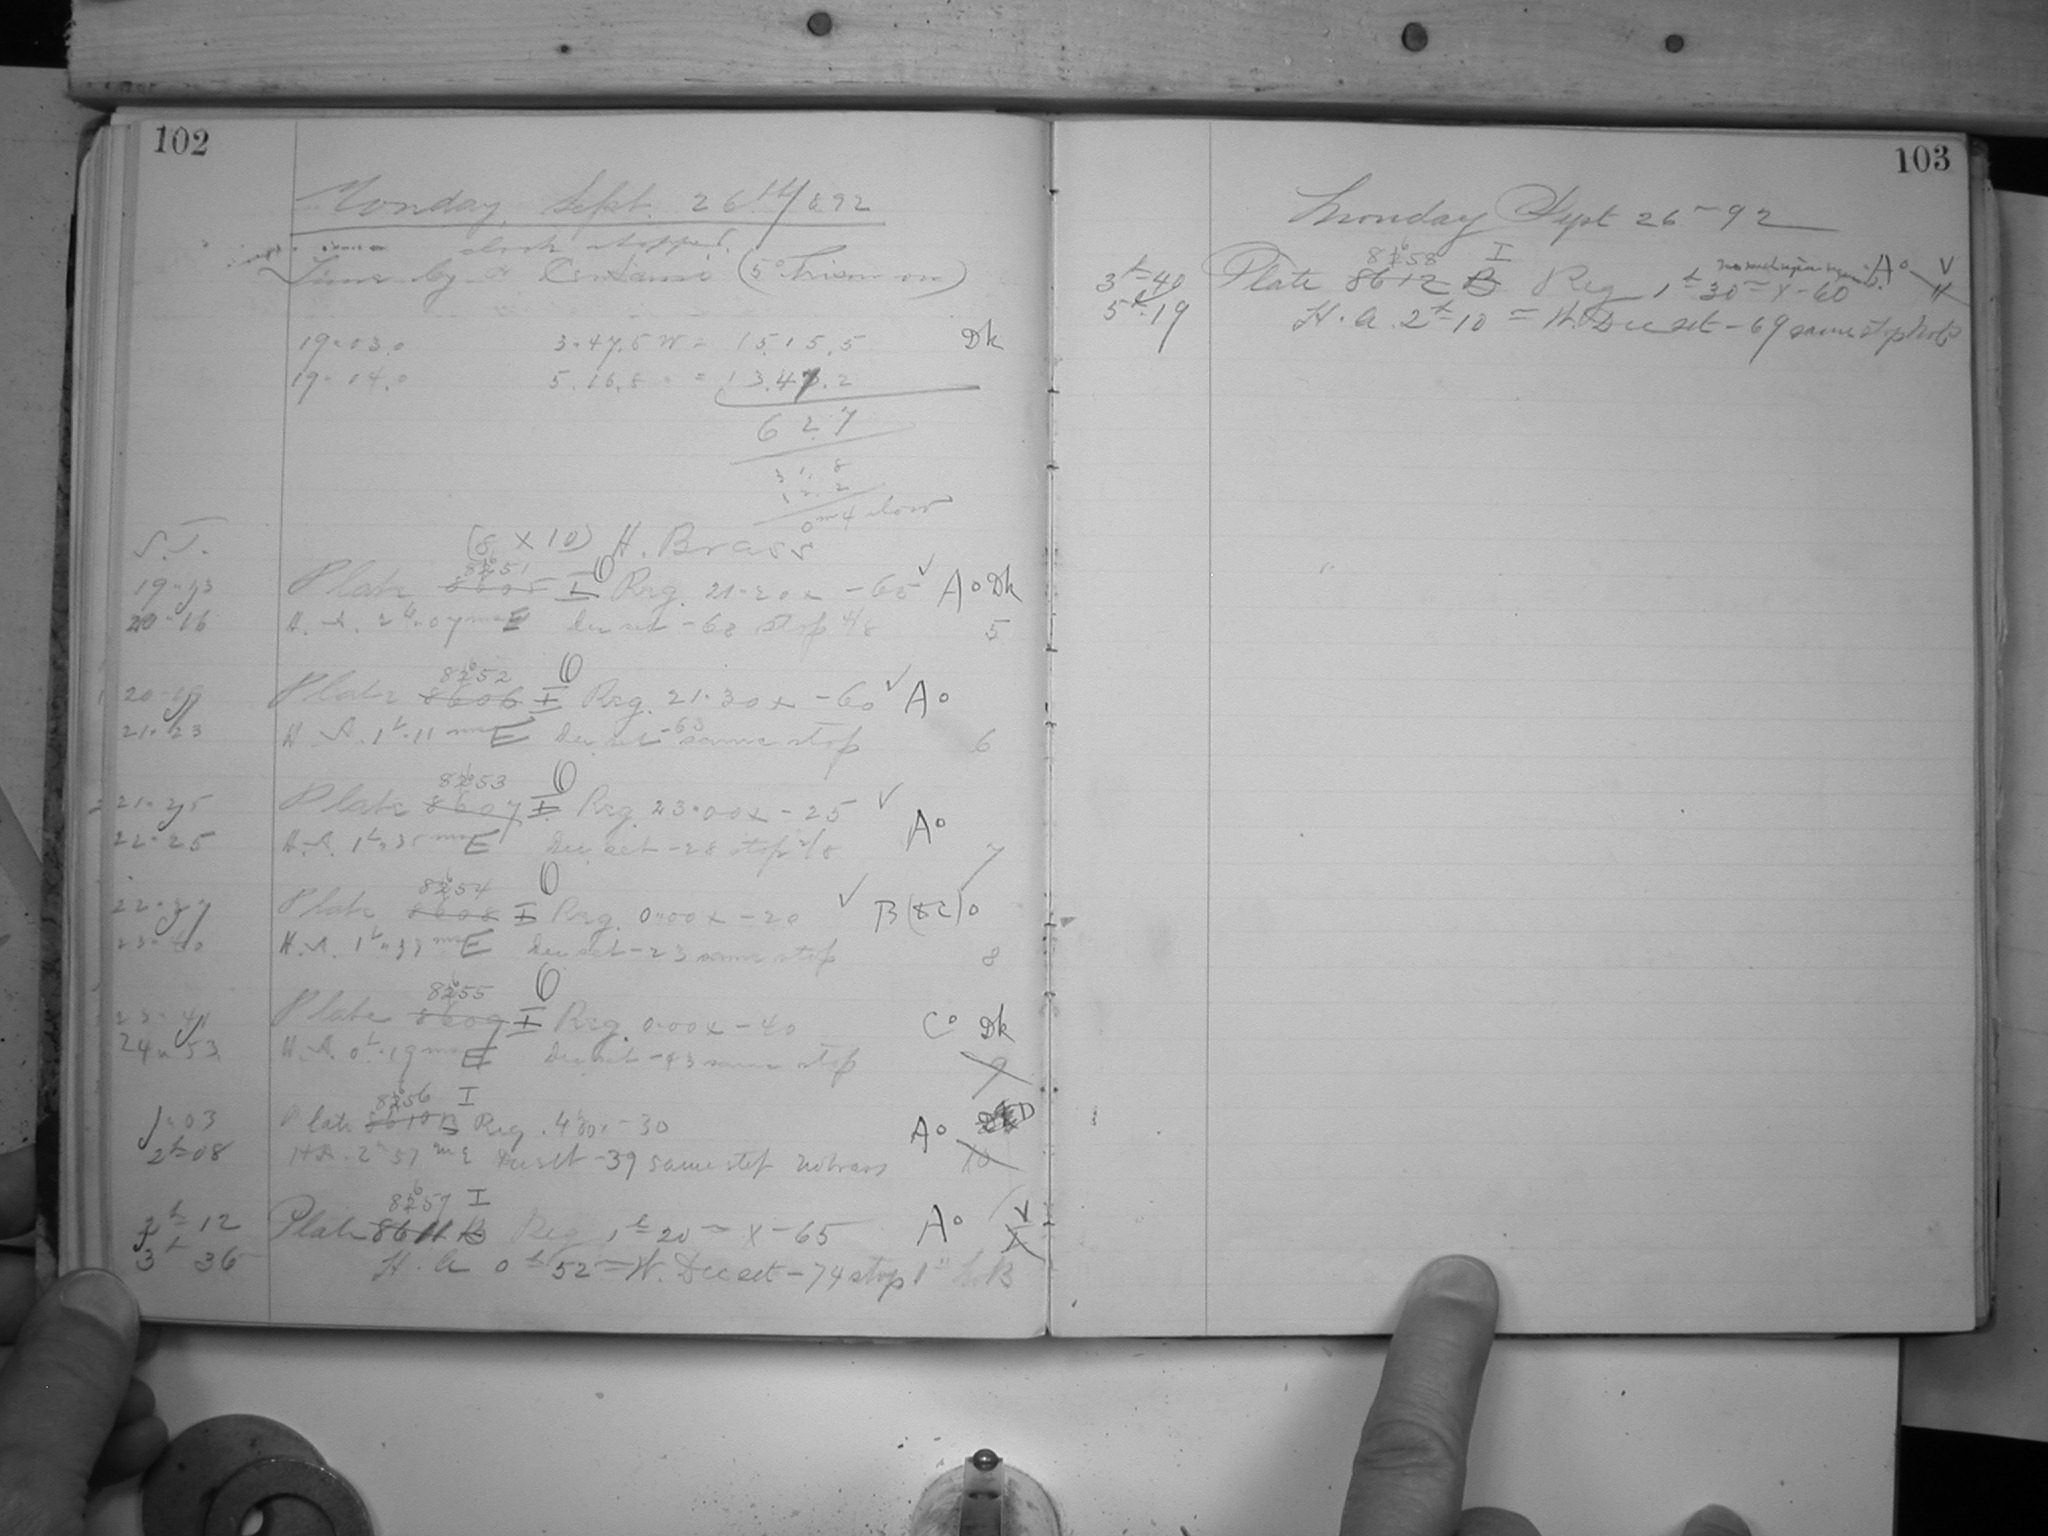 102
Monday, Sept. 26th 1892
clock stopped.
Time by α Centauri (5° Prism on)
19-03.0 3.47.5 W = 15 15.5 Dk
19-04.0 5.16.8 = 13.47.2
62.7
31.8
32.2
0m4 slow
S.T. (8 x 10) H. Brass
8251 O
Plate 8605 I Reg. 21-20 x -65 ✓ A° Dk
20-16 H.A. 2h-07m E Dec set -68 stop 4/8 5
8252 O
Plate 8606 I Reg. 21-30 x -60 ✓ A°
21-23 H.A. 1h-11m E Dec set -63 same stop 6
8253 O
21-25 Plate 8607 I Reg. 23-00 x -25 ✓ A°
22-25 H.A. 1h-35m E Dec set -28 stop 2/8 7
8254 O
22-27 Plate 8608 I Reg. 0-00 x -20 ✓ B(&C)°
23-40 H.A. 1h-33m E Dec set -23 same stop 8
8255 O
23-41 Plate 8609 I Reg. 0-00 x -40 C° Dk
24-53 H.A. 0h-19m E Dec set -43 same stop 9
8256 I
1-03 Plate 8610 B Reg. 4h00 x -30 A° D
2h-08 H.A. 2h 57m E Dec set -39 same stop 10
8257 I
2h-12 Plate 8611 B Reg 1h-20m x -65 A° V
3h-36 H.A. 0h 52m W. Dec set -74 stop 1
103
Monday Sept 26-92
8258 I
3h-40 Plate 8612 B Reg 1h-30m x -60 A° V
5h-19 H.A. 2h-10m W. Dec set -69 same stop